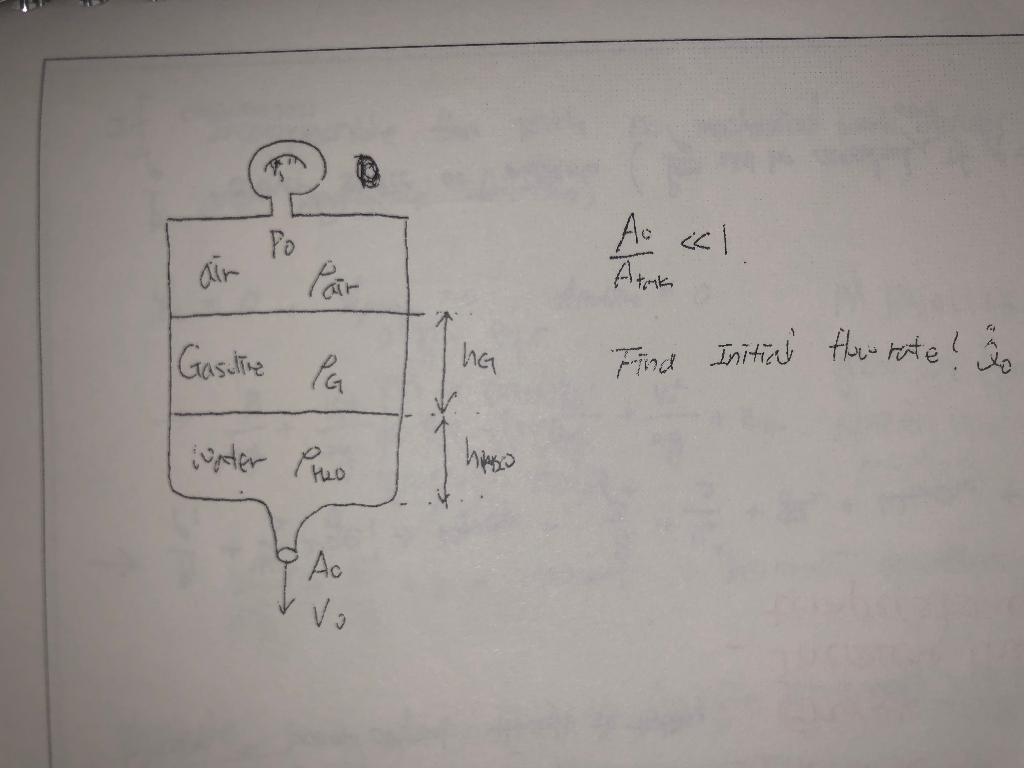 P₀
air ρair
Gasoline ρG
hG
water ρH₂O
hH₂O
A₀
V₀
A₀/Atank ≪ 1.
Find Initial flow rate! Q̇₀